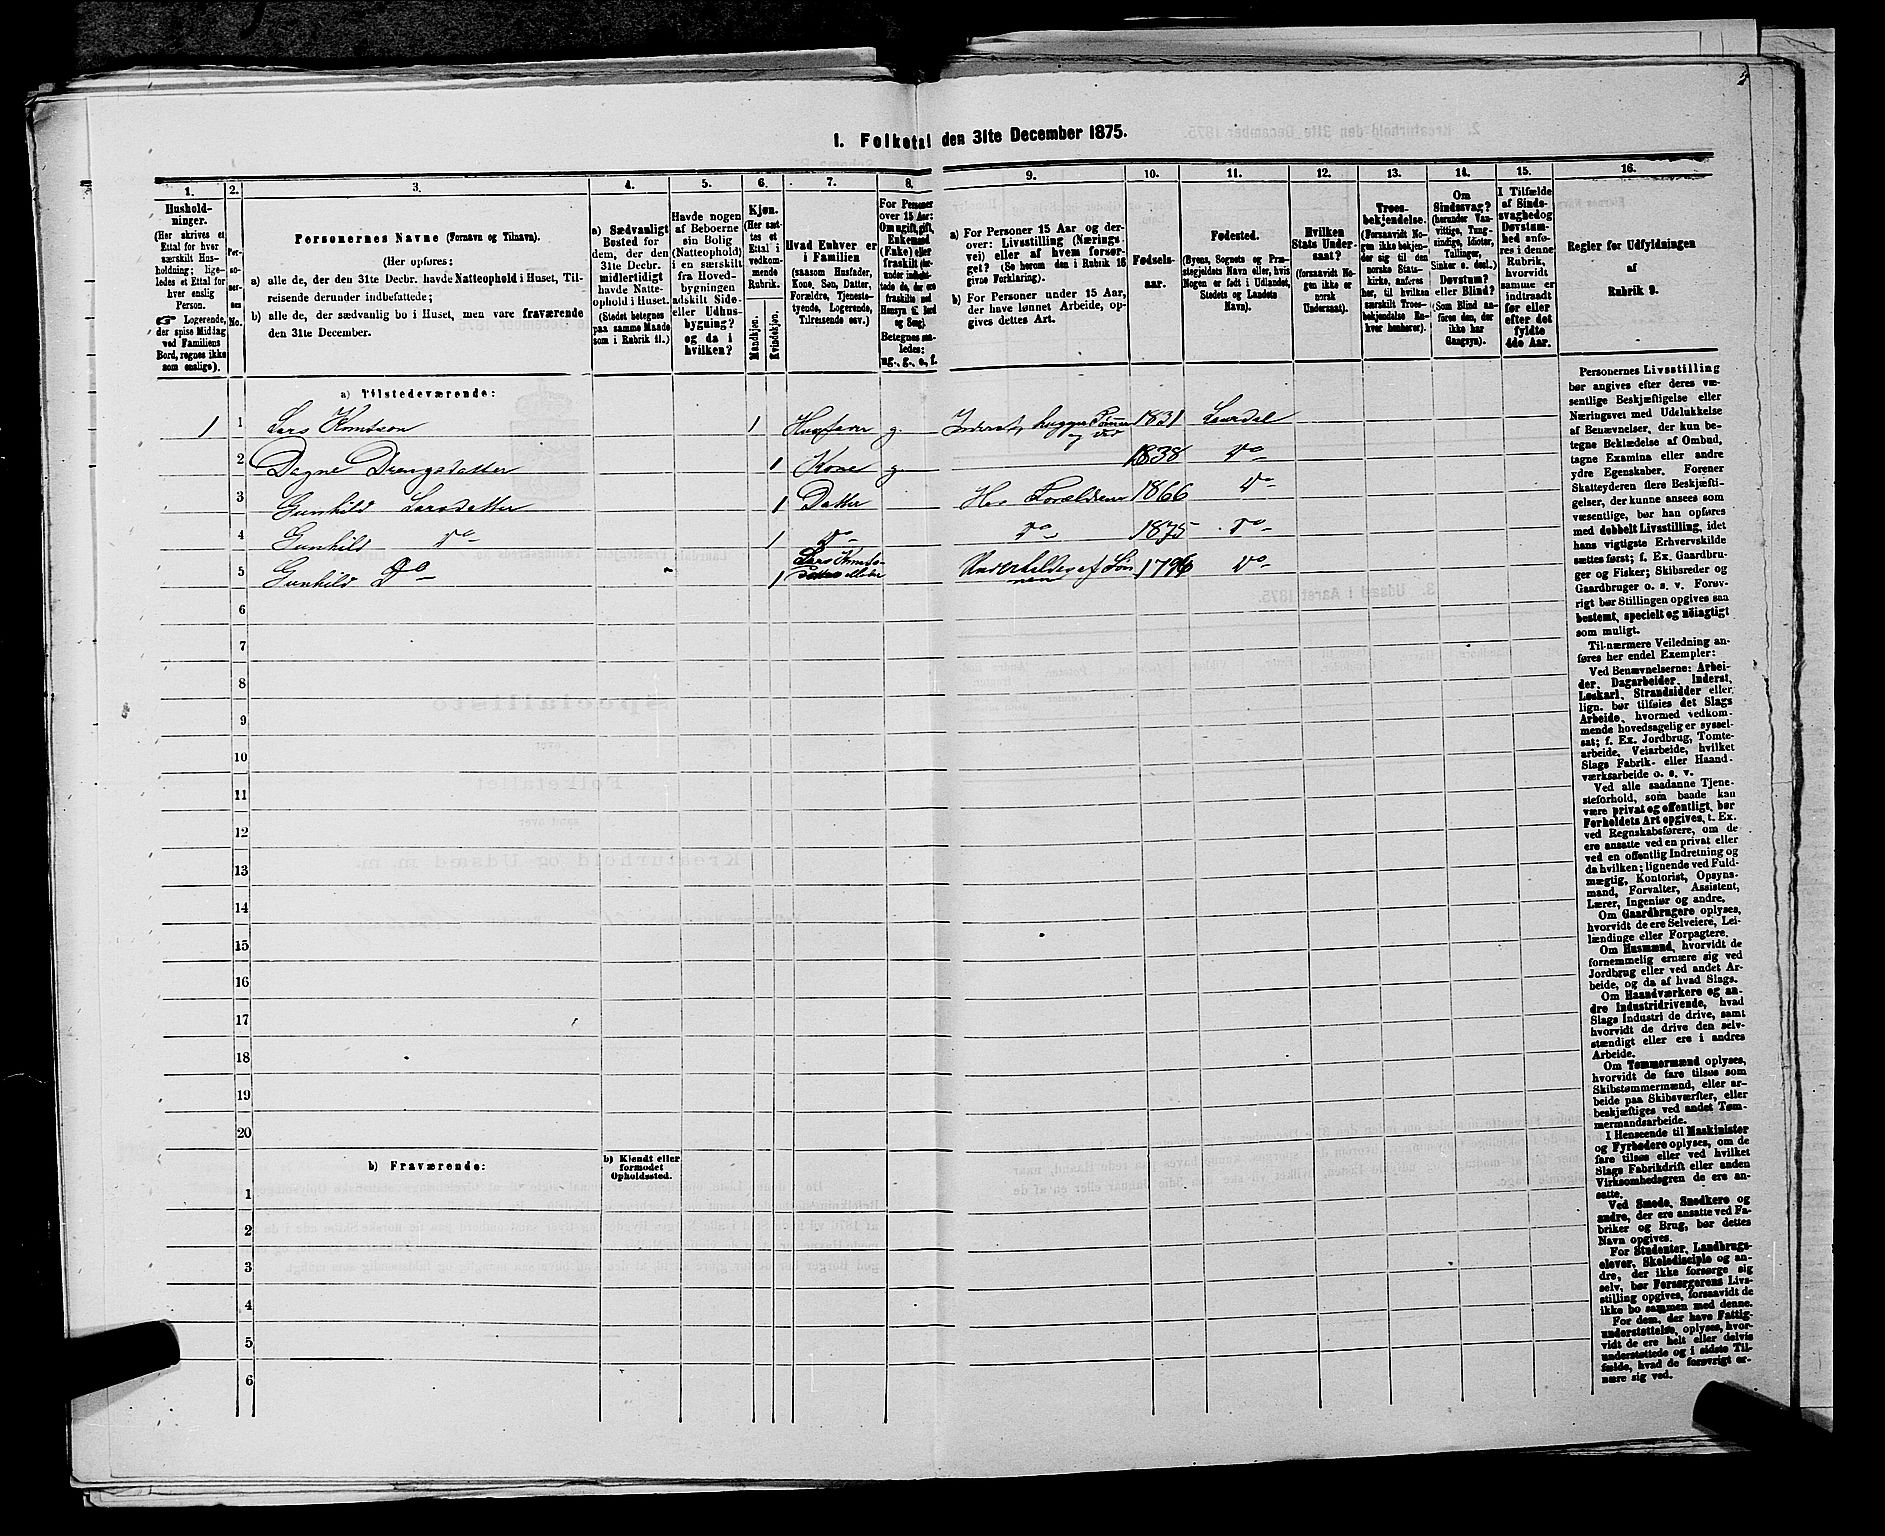 1. Folketal den 31te December 1875.
1.
2.
3.
4.
5.
6.
7.
8.
9.
10.
11.
12.
13.
14.
15.
16.
Hushold-
ninger.
(Her skrives et
Ettal for hver
særskilt Hus-
holdning; lige-
ledes et Ettal for
hver enslig
Person.
☞ Logerende,
der spise Middag
ved Familiens
Bord, regnes ikke
som enslige).
Per-
so-
ner-
nes
No.
Personernes Navne (Fornavn og Tilnavn).
(Her opføres:
a) alle de, der den 31te Decbr. havde Natteophold i Huset, Til-
reisende derunder indbefattede;
b) alle de, der sædvanlig bo i Huset, men vare fraværende
den 31te December.
a) Sædvanligt
Bosted for
dem, der den
31te Decbr.
midlertidigt
havde Natte-
ophold i Huset.
(Stedet betegnes
paa samme Maade
som i Rubrik 11.)
Havde nogen
af Beboerne
sin Bolig
(Natteophold)
i en særskilt
fra Hoved-
bygningen
adskilt Side-
eller Udhus-
bygning?
og da i
hvilken?
Kjøn.
(Her sæt-
tes et
Ettal i
vedkom-
mende
Rubrik.
Mandkjøn.
Kvindekjøn.
Hvad Enhver er
i Familien
(saasom Husfader,
Kone, Søn, Datter,
Forældre, Tjeneste-
tyende, Logerende,
Tilreisende osv.)
For Personer
over 15 Aar:
Om ugift, gift,
Enkemand
(Enke) eller
fraskilt
Betegnes saa-
ledes:
ug., g., e., f.
a) For Personer 15 Aar og der-
over: Livsstilling (Nærings-
vei) eller af hvem forsør-
get? (Se herom den i Rubrik 16
givne Forklaring).
b) For Personer under 15 Aar,
der have lønnet Arbeide, op-
gives dettes Art.
Fødsels-
aar.
Fødested.
(Byens, Sognets og Præ-
stegjeldets Navn eller, hvis
Nogen er født i Udlandet,
Stedets og Landets
Navn).
Hvilken
Stats Under-
saat?
(forsaavidt No-
gen ikke er
norsk
Undersaat).
Troes-
bekjendelse.
(Forsaavidt No-
gen ikke bekjen-
der sig til den
norske Stats-
kirke, anføres
her, til hvilken
særskilt Troes-
bekjendelse En-
hver henhører).
Om
Sindssvag?
(herunder Van-
vittige, Tung-
sindige, Idioter,
Tullinger,
Sinker o. desl.)
Døvstum?
eller Blind?
(Som Blind an-
føres den, der
ikke har
Gangsyn).
I Tilfælde
af Sinds-
svaghed og
Døvstum-
hed anfø-
res i denne
Rubrik,
hvorvidt
samme er
indtraadt
før eller
efter det
fyldte
4de Aar.
Regler for Udfyldningen
af
Rubrik 9.
a) Tilstedeværende:
1 1 Lars Knutson 1 Husfader g. Inderst, hugger Tømmer og Ved 1831 Laurdal
2 Dagne Drengsdatter 1 Kone g. 1838 Do
3 Gunhild Larsdatter 1 Datter Hos Forældrene 1866 Do
4 Gunhild Do 1 Do Do 1875 Do
5 Gunhild Do 1 Lars Knuts. Underholdes af Søn- nen 1796 Do
6
7
8
9
10
11
12
13
14
15
16
17
18
19
20
b) Fraværende:
b) Kjendt eller
formodet
Opholdssted.
1
2
3
4
5
6
Personernes Livsstilling
bør angives efter deres væ-
sentlige Beskjæftigelse eller
Næringsvei med Udelukkelse
af Benævnelser, der kun be-
tegne Beklædelse af Ombud,
tagne Examina eller andre
ydre Egenskaber. Forener
Skatteyderen flere Beskjæfti-
gelser, der kunne ansees som
væsentlige, bør han opføres
med dobbelt Livsstilling, idet
hans vigtigste Erhvervskilde
sættes først; f. Ex. Gaardbru-
ger og Fisker; Skibsreder og
Gaardbruger o. s. v. Forøv-
rigt bør Stillingen opgives saa
bestemt, specielt og nøiagtigt
som muligt.
Til nærmere Veiledning an-
føres her endel Exempler:
Ved Benævnelserne: Arbei-
der, Dagarbeider, Inderst,
Løskarl, Strandsidder eller
lign. bør tilføies det Slags
Arbeide, hvormed vedkom-
mende hovedsagelig er syssel-
sat; f. Ex. Jordbrug, Tomte-
arbeide, Veiarbeide, hvilket
Slags Fabrik- eller Haand-
værksarbeide o. s. v.
Ved alle saadanne Tjene-
steforhold, som baade kan
være privat og offentligt, bør
Forholdets Art opgives, t. Ex.
ved Regnskabsførere, om de
ere ansatte ved en privat eller
ved en offentlig Indretning og
da hvilken; lignende ved Fuld-
mægtig, Kontorist, Opsyns-
mand, Forvalter, Assistent,
Lærer, Ingeniør og andre.
Om Gaardbrugere oplyses,
hvorvidt de ere Selveiere, Lei-
lændinge eller Forpagtere.
Om Husmænd, hvorvidt de
fornemmelig ernære sig ved
Jordbrug eller ved andet Ar-
beide, og da af hvad Slags.
Om Haandværkere og an-
dre Industridrivende, hvad
Slags Industri de drive, samt
hvorvidt de drive den selv-
stændigt eller ere i andres
Arbeide.
Om Tømmermænd oplyses,
hvorvidt de fare tilsøs som
Skibstømmermænd, eller ar-
beide paa Skibsværfter, eller
beskjæftiges ved andet Tøm-
mermandsarbeide.
I Henseende til Maskinister
og Fyrbødere oplyses, om de
fare tilsøs eller ved hvilket
Slags Fabrikdrift eller anden
Virksomhedsgren de ere an-
satte.
Ved Smede, Snedkere og
andre, der ere ansatte ved Fa-
briker og Brug, bør dettes
Navn opgives.
For Studenter, Landbrugs-
elever, Skoledisciple og an-
dre, der ikke forsørge sig
selv, bør Forsørgerens Livs-
stilling opgives, forsaavidt de
ikke bo sammen med denne.
For dem, der have Fattig-
understøttelse, oplyses, hvor-
vidt de ere helt eller delvis
understøttede og i sidste Til-
fælde, hvad de forøvrigt er-
nære sig ved.